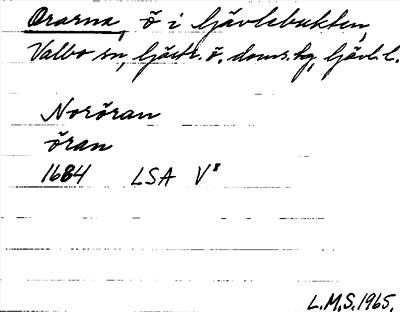 Ororna, ö i Gävlebukten,
Valbo sn, Gästr. ö. doms. tg, Gävl. l.
Noröran
öran
1684 LSA V⁸
L.M.S. 1965.